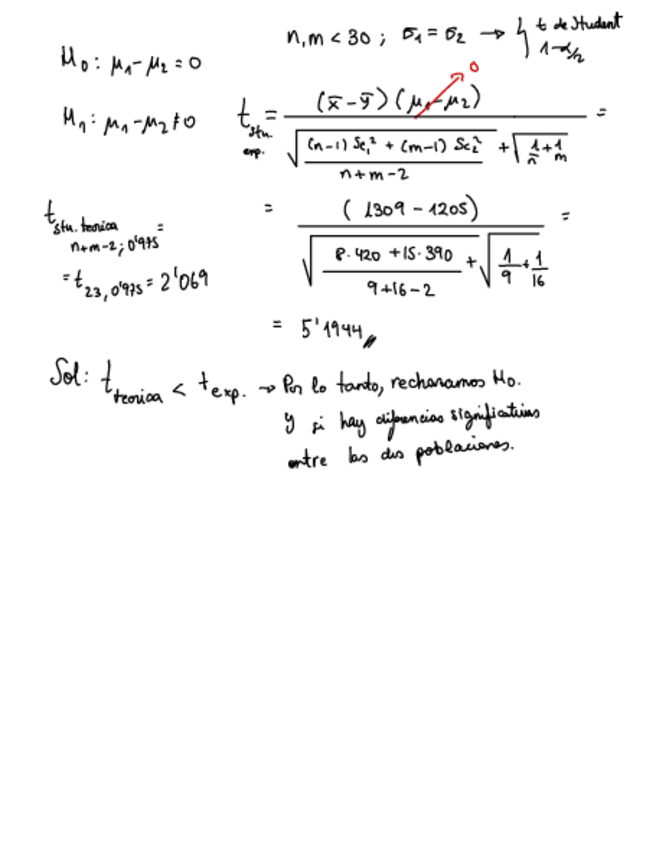 n, m < 30 ; σ₁ = σ₂ → { t de Student
1-α/2
H₀ : μ₁ - μ₂ = 0
H₁ : μ₁ - μ₂ ≠ 0
t stu. exp. = (x̄ - ȳ) (μ₁ - μ₂) → 0 / √((n-1) Sc₁² + (m-1) Sc₂² / n+m-2) + √(1/n + 1/m) =
t stu. teorica n+m-2; 0'975 =
= (1309 - 1205) / √(8·420 + 15·390 / 9+16-2) + √(1/9 + 1/16) =
= t 23, 0'975 = 2'069
= 5'1944
Sol: t teorica < t exp. → Por lo tanto, rechazamos H₀.
Y si hay diferencias significativas
entre las dos poblaciones.